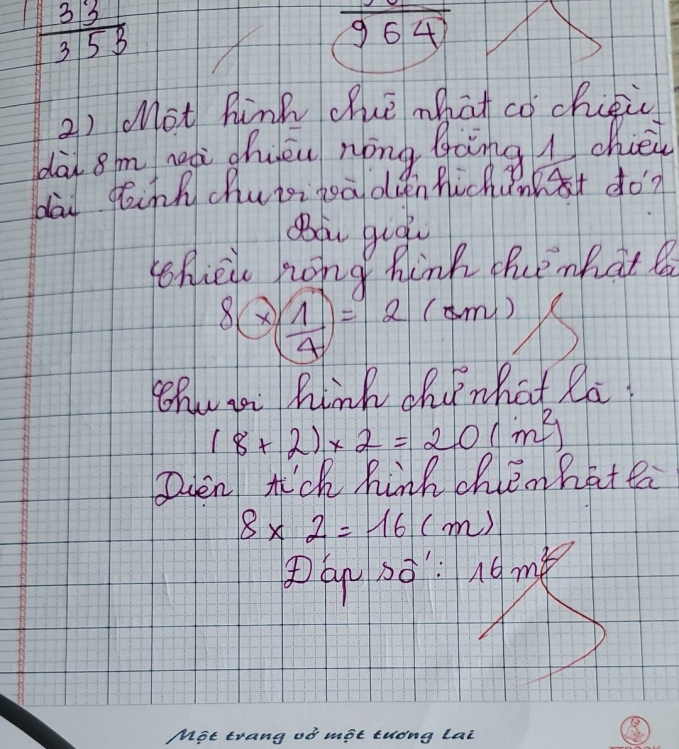 33
353
964
2) Một hình chữ nhật có chiều
dài 8m với chiều rộng bằng 1/4 chiều
dài tính chu vi và diện hích hình chữ nhật đó?
Bài giải
Chiều rộng hình chữ nhật là
8 x 1/4 = 2 (m)
Chu vi hình chữ nhật là:
(8 + 2) x 2 = 20 (m²)
Diện tích hình chữ nhật là
8 x 2 = 16 (m)
Đáp số: 16 m²
Một trang vở một tương lai